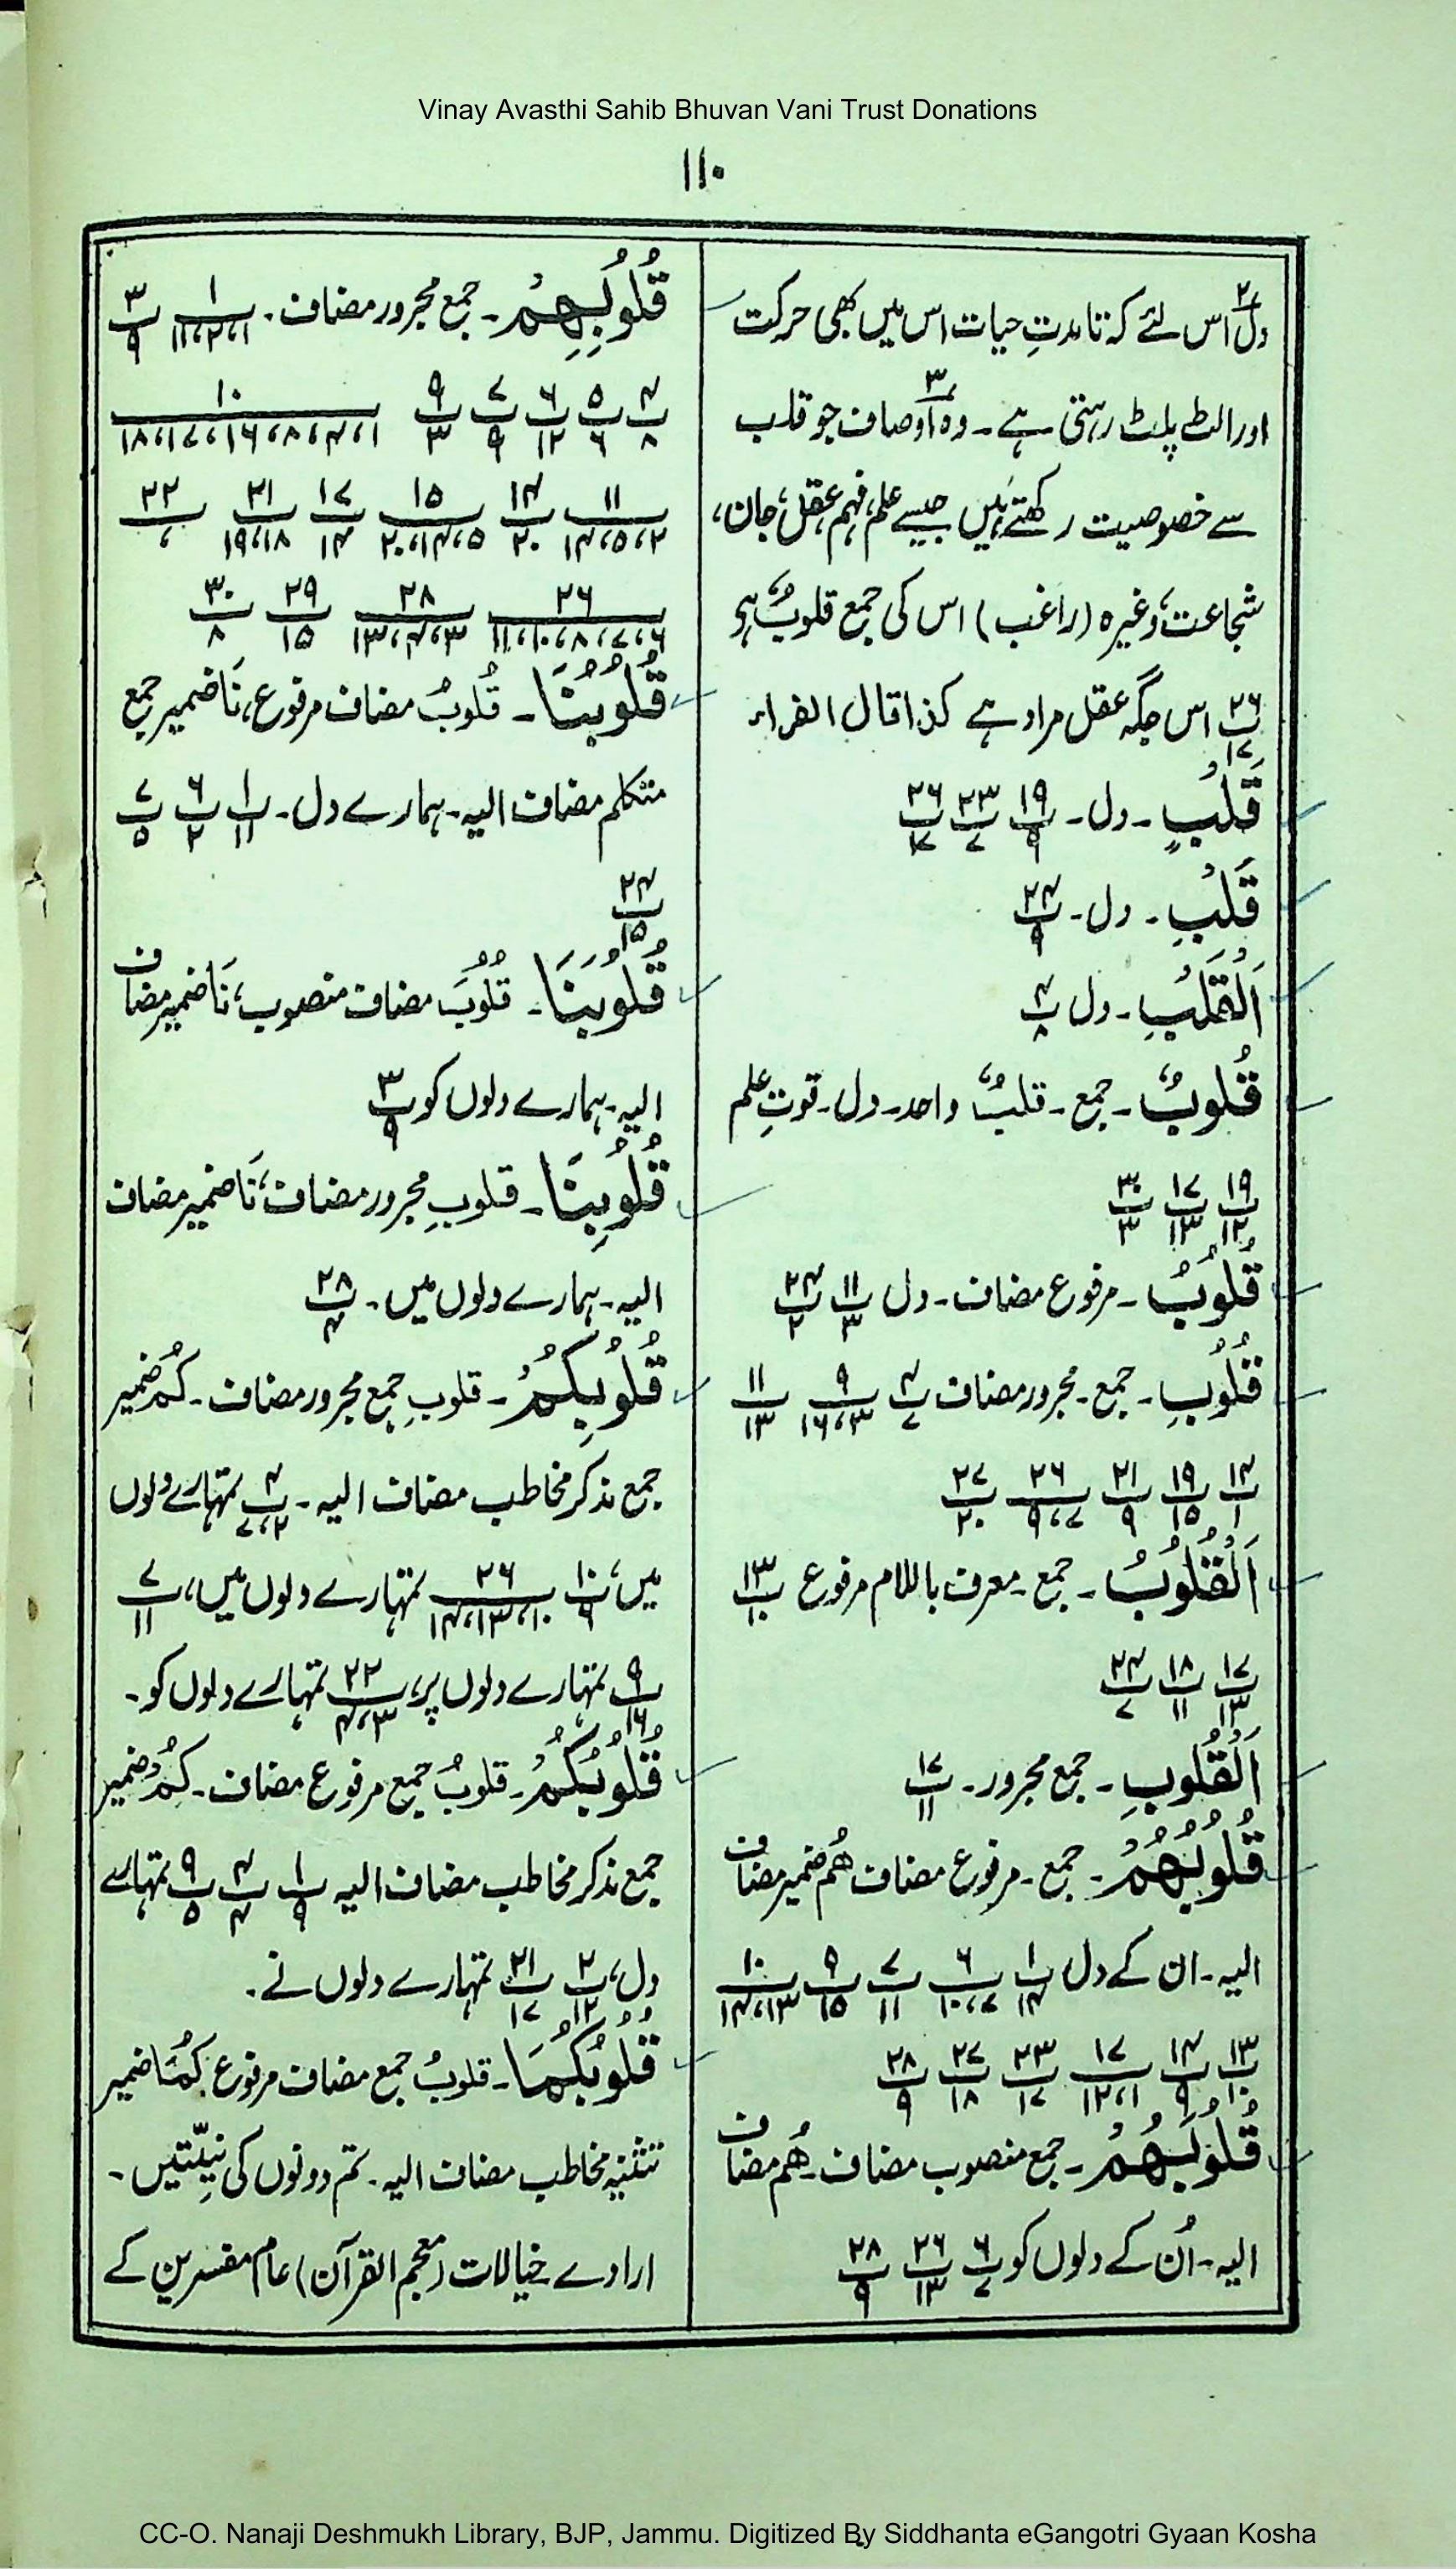 Vinay Avasthi Sahib Bhuvan Vani Trust Donations
۱۱۰
دل۲؎ اس لئے کہ تا مدتِ حیات اس میں بھی حرکت
اور الٹ پلٹ رہتی ہے۔ ۳؎ وہ اوصاف جو قلب
سے خصوصیت رکھتے ہیں جیسے علم، فہم، عقل، جان،
شجاعت، وغیرہ (راغب) اس کی جمع قلوبٌ ہے
۲۶/۱۷ اس جگہ عقل مراد ہے کذا قال الفراء
قَلْبٍ۔ دل۔ ۱۹/۹ ۲۳/۷ ۲۶/۱۷
قَلْبِ۔ دل۔ ۲۴/۹
اَلْقَلْبِ۔ دل ۴/۸
قُلوبٌ۔ جمع۔ قلبٌ واحد۔ دل۔ قوتِ علم
۱۹/۱۲ ۱۷/۱۳ ۳۰/۳
قُلُوْبُ۔ مرفوع مضاف۔ دل ۱۱/۳ ۲۴/۲
قُلُوْبِ۔ جمع۔ مجرور مضاف ۴/۷ ۹/۳،۱۶ ۱۱/۱۳
۱۴/۱ ۱۹/۱۵ ۲۱/۹ ۲۶/۷،۹ ۲۷/۲۰
اَلْقُلُوْبُ۔ جمع۔ معرف باللام مرفوع ۱۳/۱۰
۱۷/۱۳ ۱۸/۱۱ ۲۴/۷
اَلْقُلُوبِ۔ جمع مجرور۔ ۱۷/۱۱
قُلُوْبُهُمْ۔ جمع۔ مرفوع مضاف هُم ضمیر مضاف
الیہ۔ ان کے دل ۱/۱۴ ۶/۷،۱۰ ۷/۱۱ ۹/۱۵ ۱۰/۱۳،۱۴
۱۳/۱۰ ۱۴/۹ ۱۷/۱،۱۲ ۲۳/۱۷ ۲۷/۱۸ ۲۸/۹
قُلُوْبَهُمْ۔ جمع منصوب مضاف۔ هُم مضاف
الیہ۔ اُن کے دلوں کو ۶/۷ ۲۶/۱۳ ۲۸/۹
قُلُوْبِهِمْ۔ جمع مجرور مضاف۔ ۱/۱،۲،۱۱ ۳/۹
۴/۸ ۵/۶ ۶/۱۲ ۷/۹ ۹/۳ ۱۰/۱،۴،۸،۱۶،۱۷،۱۸
۱۱/۲،۵،۱۴ ۱۴/۲۰ ۱۵/۵،۱۴،۲۰ ۱۷/۱۴ ۲۱/۱۸،۱۹ ۲۲/
۲۶/۶،۷،۸،۱۰،۱۱ ۲۸/۳،۴،۱۳ ۲۹/۱۵ ۳۰/۸
قُلُوْبُنَا۔ قُلوبُ مضاف مرفوع، نَا ضمیر جمع
متکلم مضاف الیہ۔ ہمارے دل۔ ۱/۱۱ ۶/۲ ۷/۵
۲۴/۱۵
قُلُوْبَنَا۔ قُلُوبَ مضاف منصوب، نَا ضمیر مضاف
الیہ۔ ہمارے دلوں کو ۳/۹
قُلُوْبِنَا۔ قلوبِ مجرور مضاف، نَا ضمیر مضاف
الیہ۔ ہمارے دلوں میں۔ ۲۸/۴
قُلُوْبِكُمْ۔ قلوبِ جمع مجرور مضاف۔ کُم ضمیر
جمع مذکر مخاطب مضاف الیہ۔ ۴/۲،۷ تمہارے دلوں
میں، ۱۰/۶ ۲۶/۱۰،۱۳،۱۴ تمہارے دلوں میں، ۷/۱۱
۹/۱۶ تمہارے دلوں پر، ۲۲/۳،۴ تمہارے دلوں کو۔
قُلُوْبُكُمْ۔ قلوبُ جمع مرفوع مضاف۔ کُمْ ضمیر
جمع مذکر مخاطب مضاف الیہ ۱/۹ ۴/۴ ۹/۵ تمہارے
دل، ۲/۱۲ ۲۱/۱۷ تمہارے دلوں نے۔
قُلُوْبُكُمَا۔ قلوبُ جمع مضاف مرفوع کُمَا ضمیر
تثنیہ مخاطب مضاف الیہ۔ تم دونوں کی نیّتیں۔
ارادے خیالات (معجم القرآن) عام مفسرین کے
CC-O. Nanaji Deshmukh Library, BJP, Jammu. Digitized By Siddhanta eGangotri Gyaan Kosha